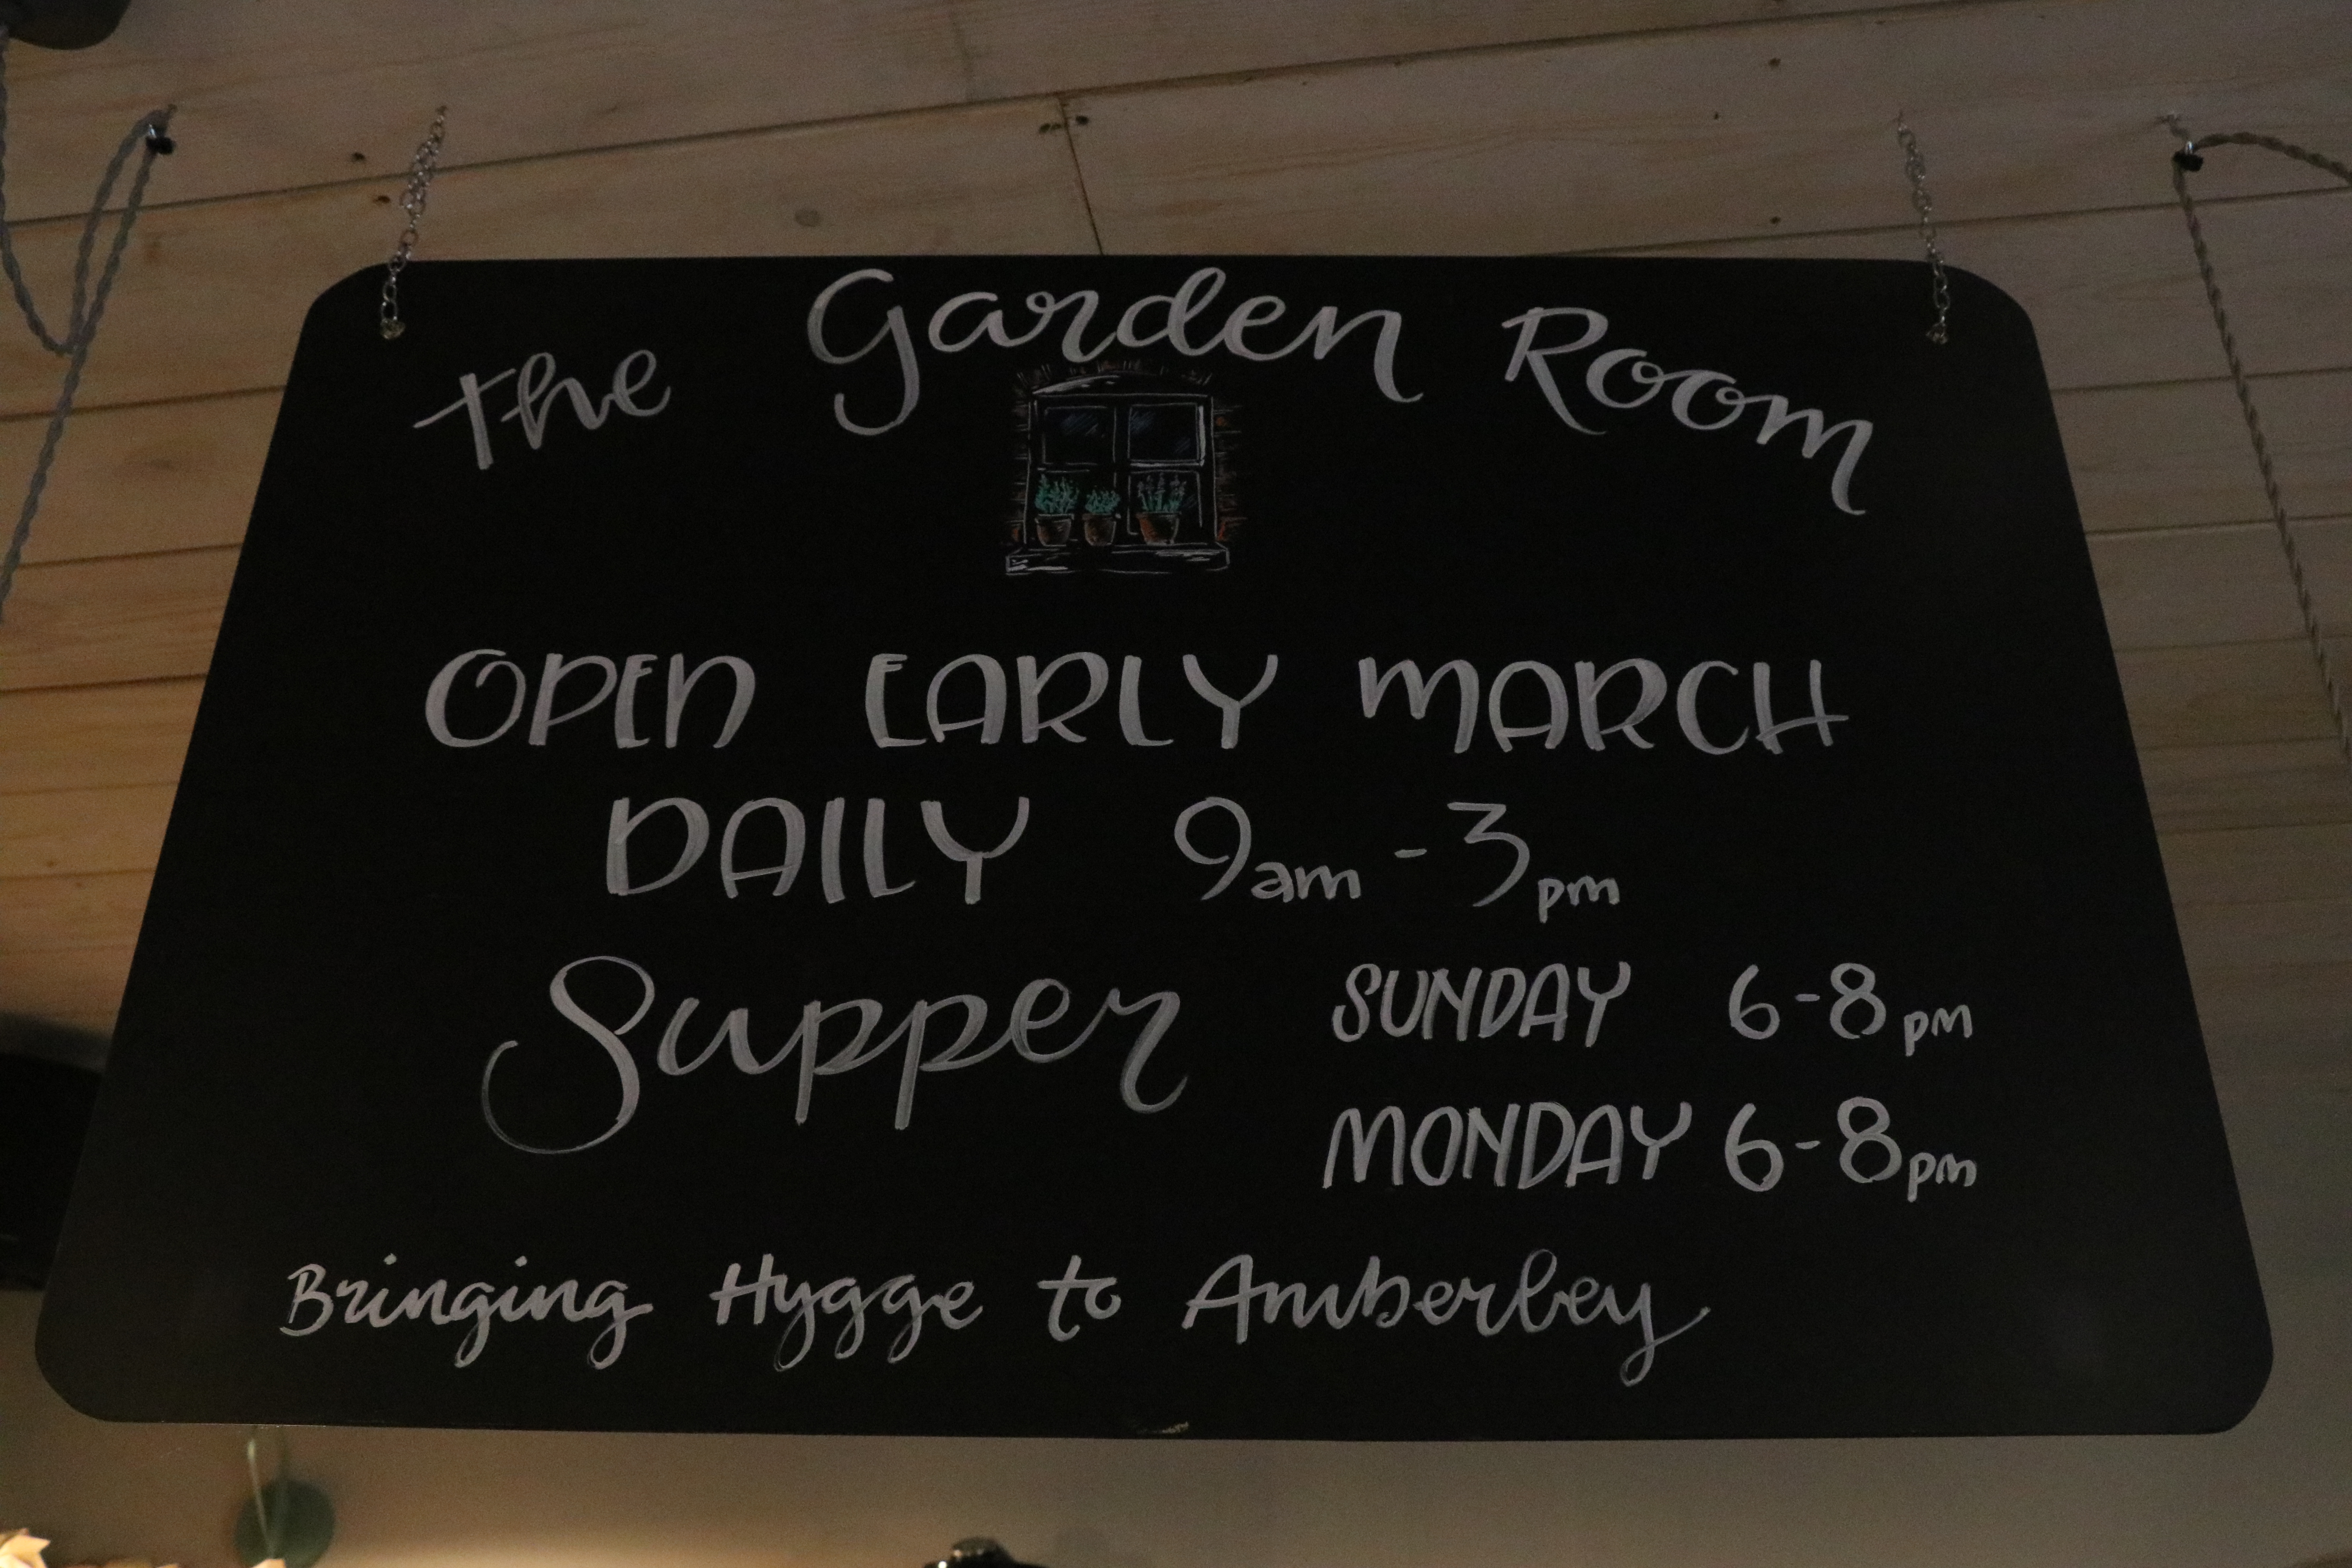 The Garden Room
OPEN EARLY MARCH
DAILY 9am - 3pm
Supper SUNDAY 6-8pm
MONDAY 6-8pm
Bringing Hygge to Amberley